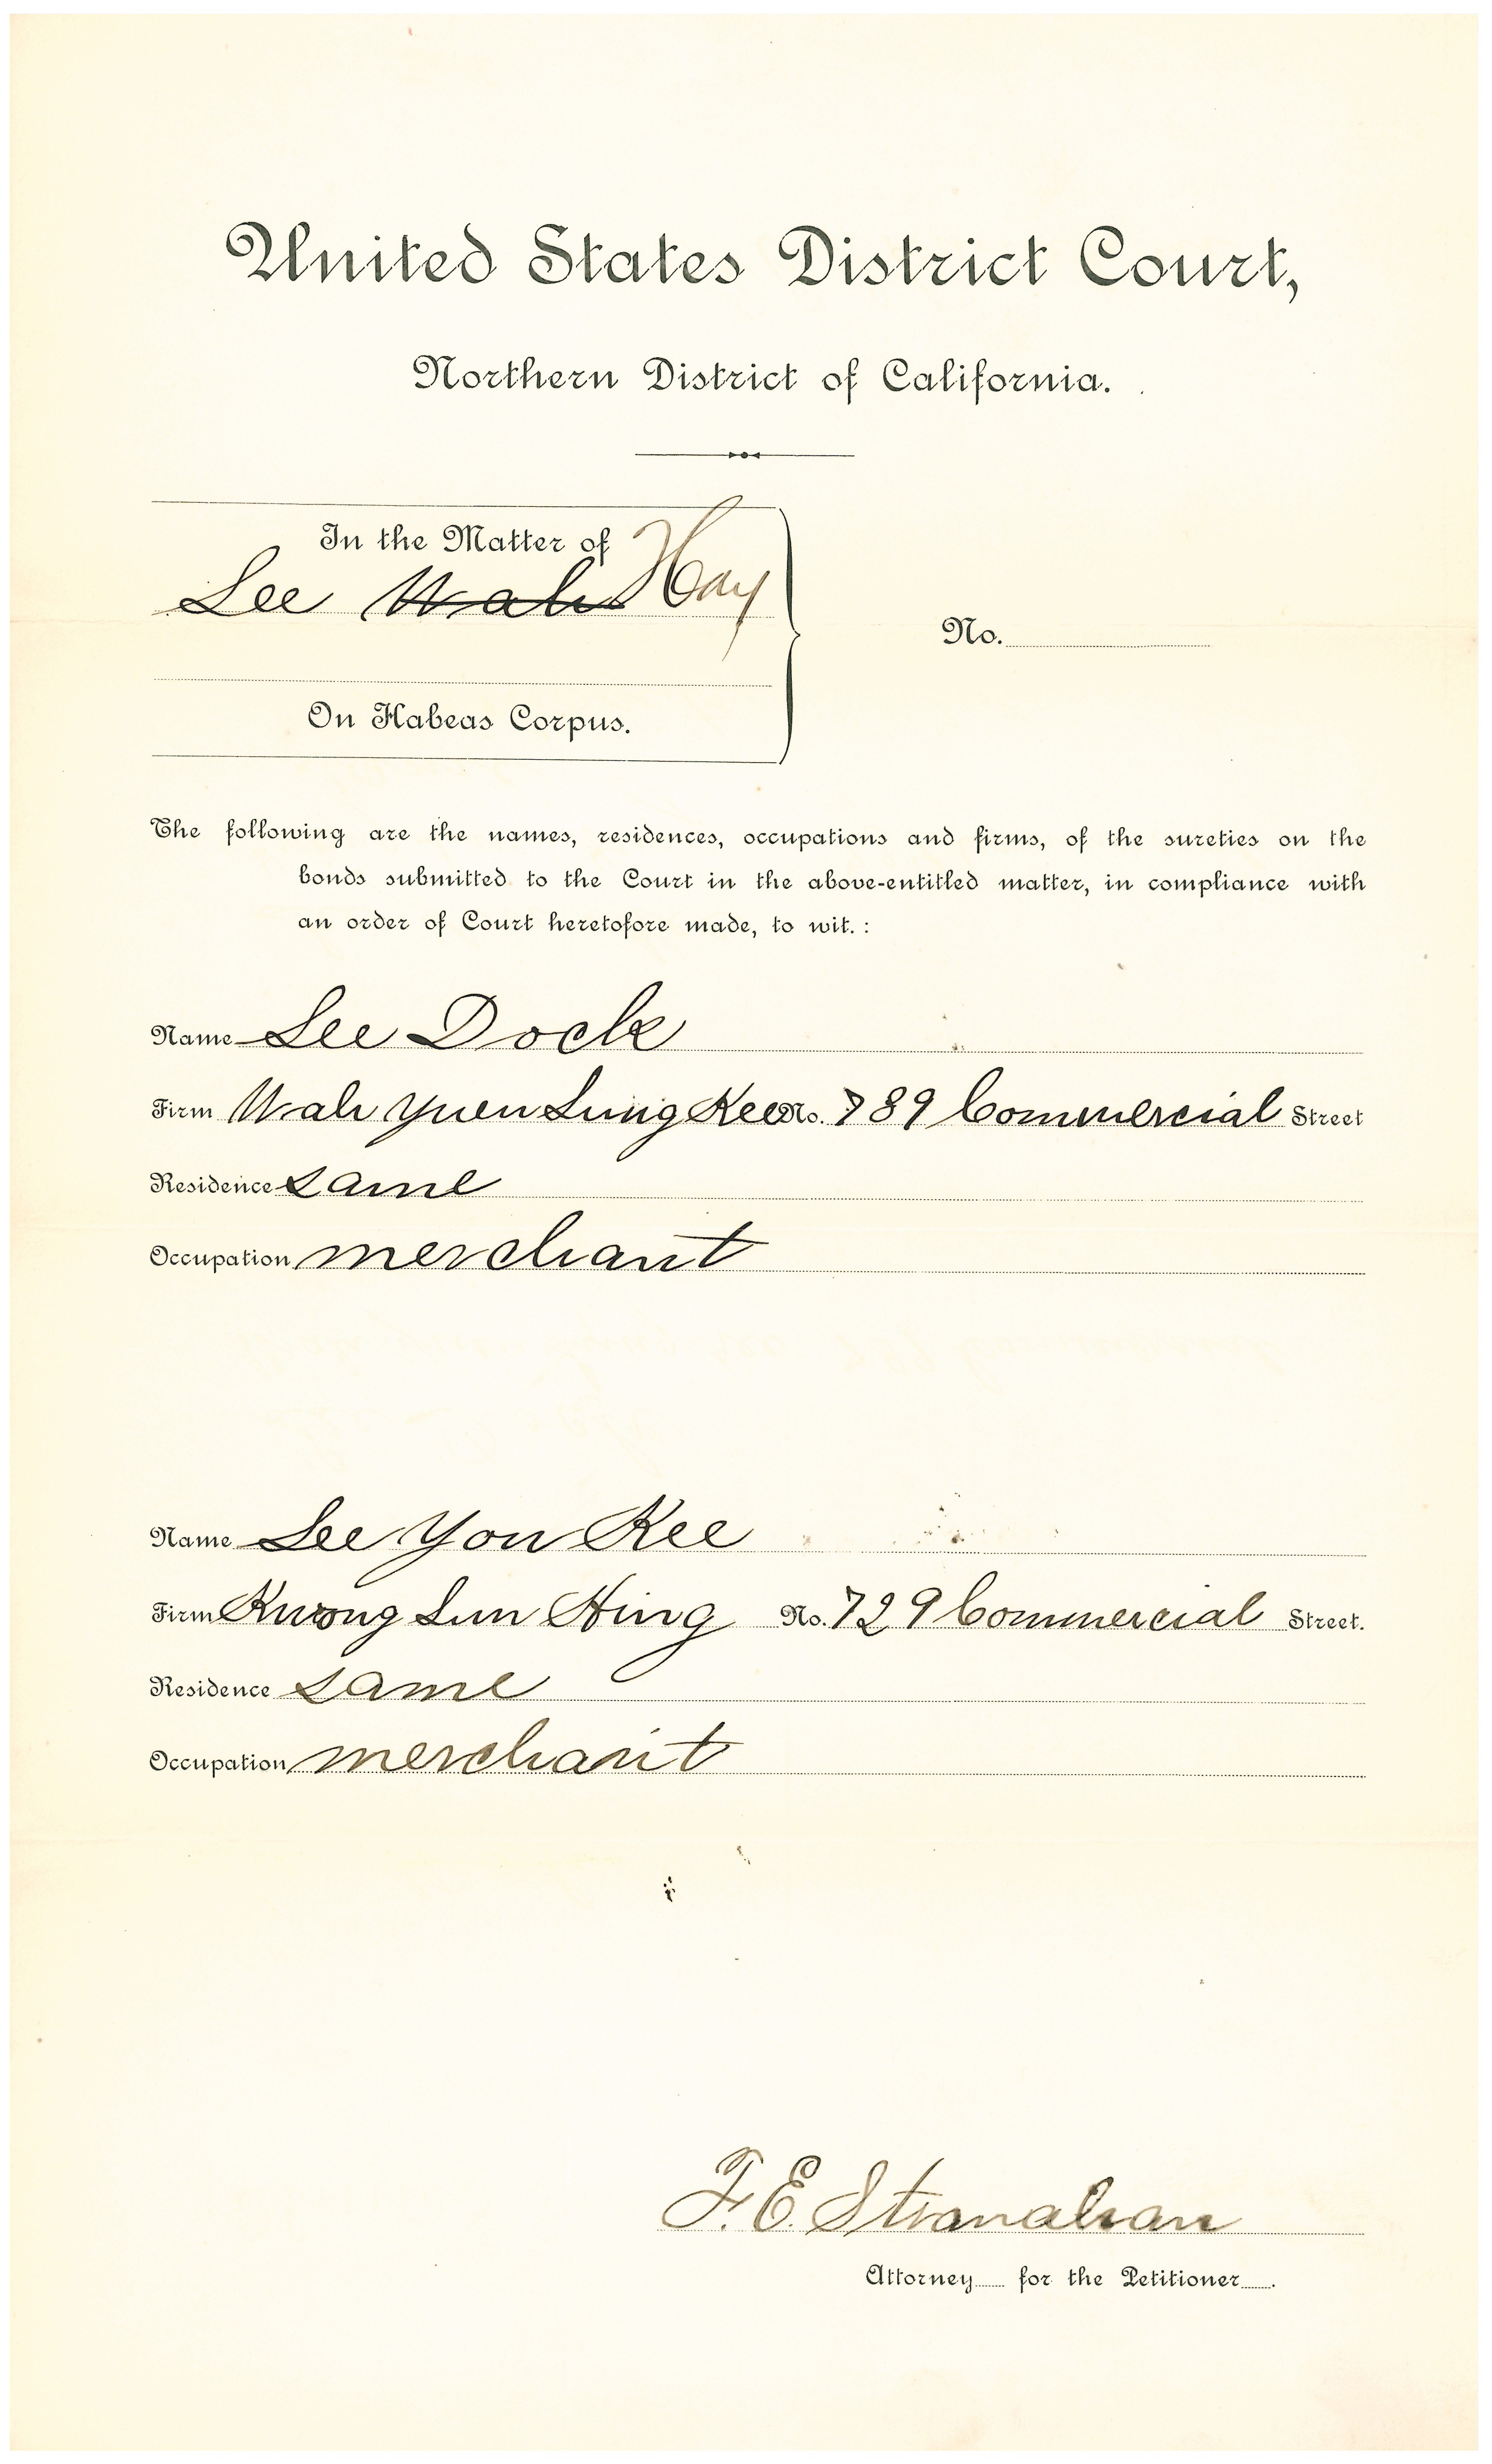 United States District Court,
Northern District of California.
In the Matter of
Lee Wah Hay
No.
On Habeas Corpus.
The following are the names, residences, occupations and firms, of the sureties on the
bonds submitted to the Court in the above-entitled matter, in compliance with
an order of Court heretofore made, to wit. :
Name Lee Dock
Firm Wah Yuen Lung Kee No. 789 Commercial Street
Residence same
Occupation merchant
Name Lee You Kee
Firm Kwong Sun Hing No. 729 Commercial Street.
Residence same
Occupation merchant
F. E. Stranahan
Attorney for the Petitioner .